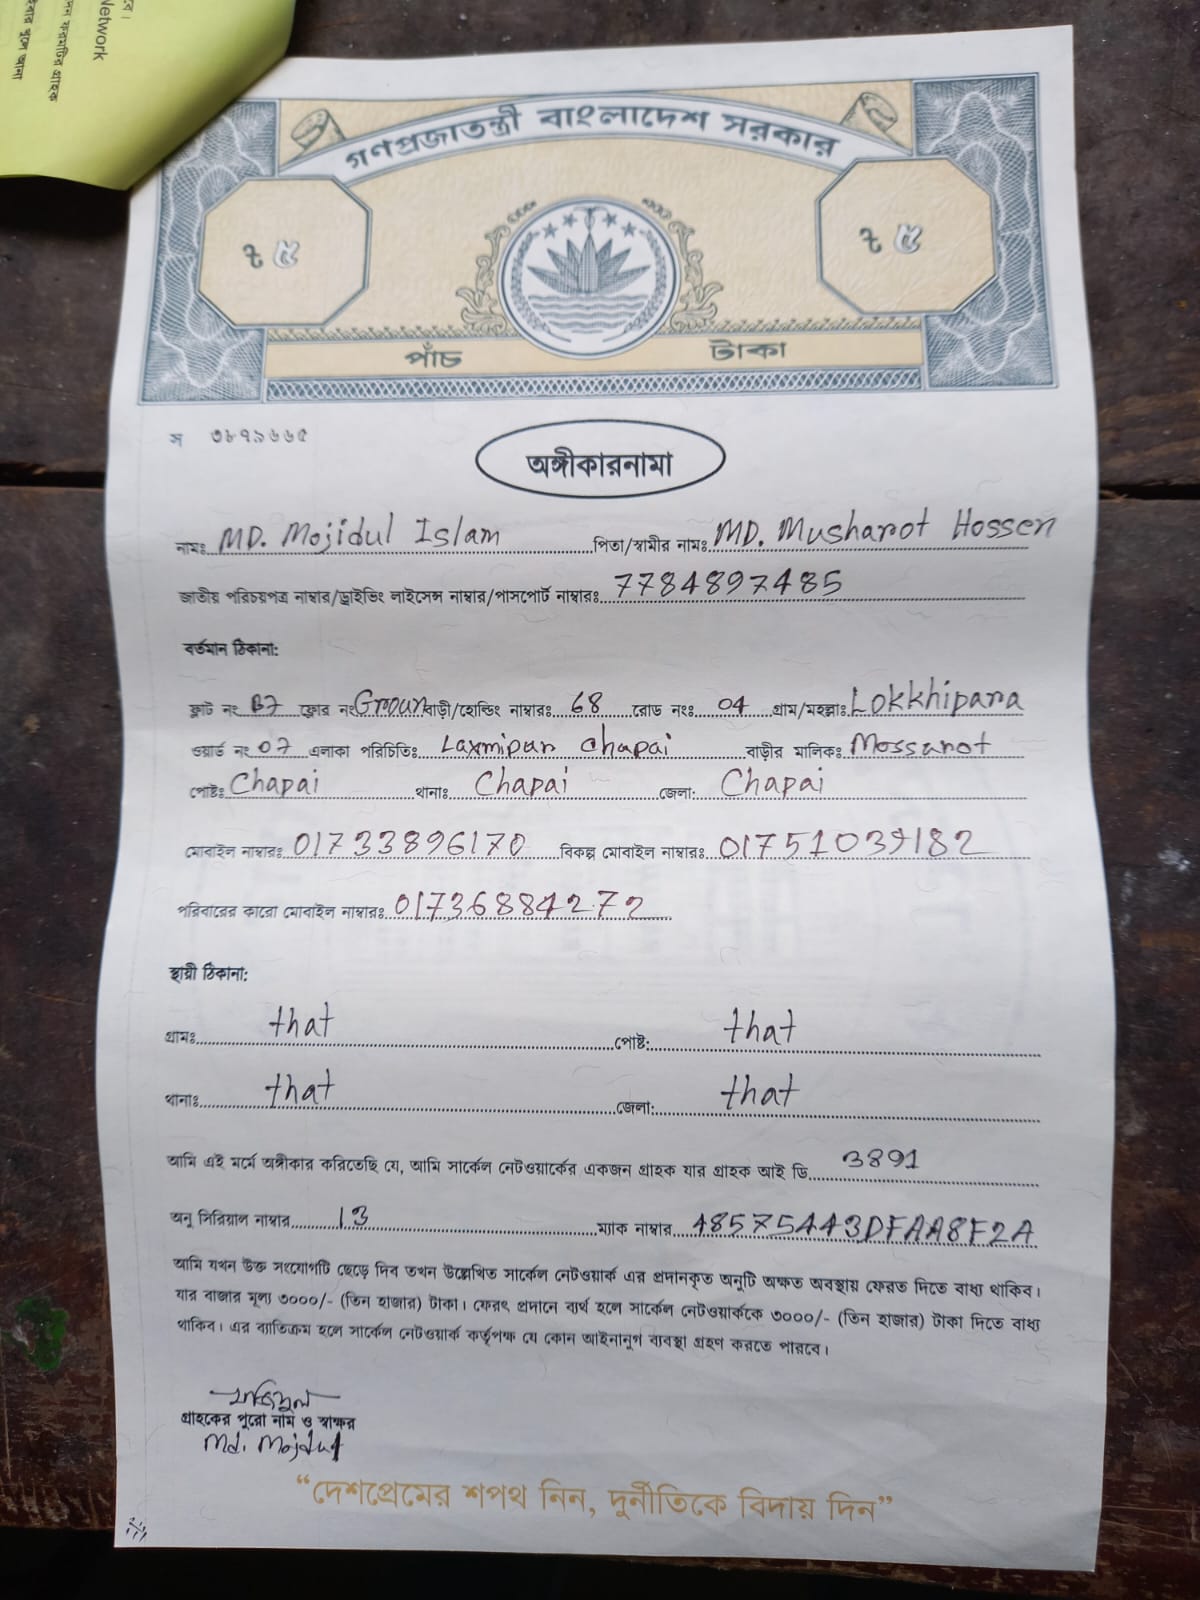 বে।
Network
দন ফরমটির গ্রাহক
ইবার খুলে আনা
গণপ্রজাতন্ত্রী বাংলাদেশ সরকার
৳ ৫ ৳ ৫
পাঁচ টাকা
স ৩৮৭৯৬৬৫
অঙ্গীকারনামা
নামঃ MD. Mojidul Islam পিতা/স্বামীর নামঃ MD. Musharot Hossen
জাতীয় পরিচয়পত্র নাম্বার/ড্রাইভিং লাইসেন্স নাম্বার/পাসপোর্ট নাম্বারঃ 7784897485
বর্তমান ঠিকানা:
ফ্লাট নং B7 ফ্লোর নং Groun বাড়ী/হোল্ডিং নাম্বারঃ 68 রোড নংঃ 04 গ্রাম/মহল্লাঃ Lokkhipara
ওয়ার্ড নং 07 এলাকা পরিচিতিঃ Laxmipur Chapai বাড়ীর মালিকঃ Mossarot
পোষ্টঃ Chapai থানাঃ Chapai জেলা: Chapai
মোবাইল নাম্বারঃ 01733896170 বিকল্প মোবাইল নাম্বারঃ 01751039182
পরিবারের কারো মোবাইল নাম্বারঃ 01736884272
স্থায়ী ঠিকানা:
গ্রামঃ that পোষ্ট: that
থানাঃ that জেলা: that
আমি এই মর্মে অঙ্গীকার করিতেছি যে, আমি সার্কেল নেটওয়ার্কের একজন গ্রাহক যার গ্রাহক আই ডি 3891
অনু সিরিয়াল নাম্বার 13 ম্যাক নাম্বার 48575443DFAA8F2A
আমি যখন উক্ত সংযোগটি ছেড়ে দিব তখন উল্লেখিত সার্কেল নেটওয়ার্ক এর প্রদানকৃত অনুটি অক্ষত অবস্থায় ফেরত দিতে বাধ্য থাকিব।
যার বাজার মূল্য ৩০০০/- (তিন হাজার) টাকা। ফেরৎ প্রদানে ব্যর্থ হলে সার্কেল নেটওয়ার্ককে ৩০০০/- (তিন হাজার) টাকা দিতে বাধ্য
থাকিব। এর ব্যাতিক্রম হলে সার্কেল নেটওয়ার্ক কর্তৃপক্ষ যে কোন আইনানুগ ব্যবস্থা গ্রহণ করতে পারবে।
মজিদুল
গ্রাহকের পুরো নাম ও স্বাক্ষর
Md. Mojidul
“দেশপ্রেমের শপথ নিন, দুর্নীতিকে বিদায় দিন”